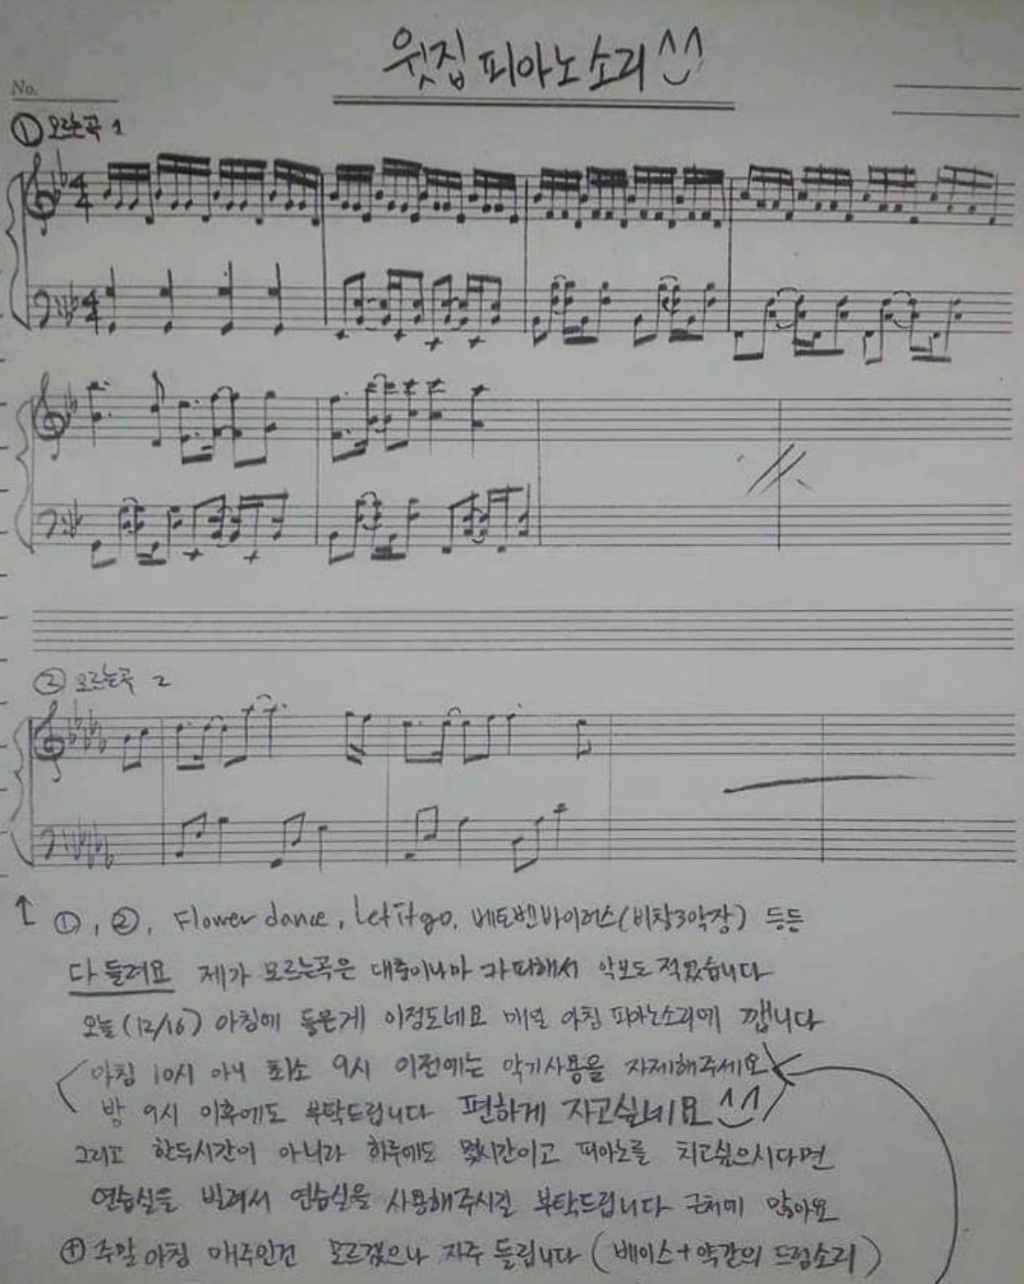 윗집 피아노 소리 ^^
No.
① 모르는곡 1
② 모르는곡 2
↑ ①, ②, Flower dance, let it go, 베토벤바이러스(비창3악장) 등등
다 들려요 제가 모르는곡은 대충이나마 카피해서 악보도 적었습니다
오늘(12/16) 아침에 들은게 이정도네요 매일 아침 피아노소리에 깹니다
(아침 10시 아니 최소 9시 이전에는 악기사용을 자제해주세요
밤 9시 이후에도 부탁드립니다 편하게 자고싶네요^^)
그리고 한두시간이 아니라 하루에도 몇시간이고 피아노를 치고싶으시다면
연습실을 빌려서 연습실을 사용해주시길 부탁드립니다 근처에 많아요
⊕ 주말 아침 매주인건 모르겠으나 자주 들립니다 (베이스+약간의 드럼소리)